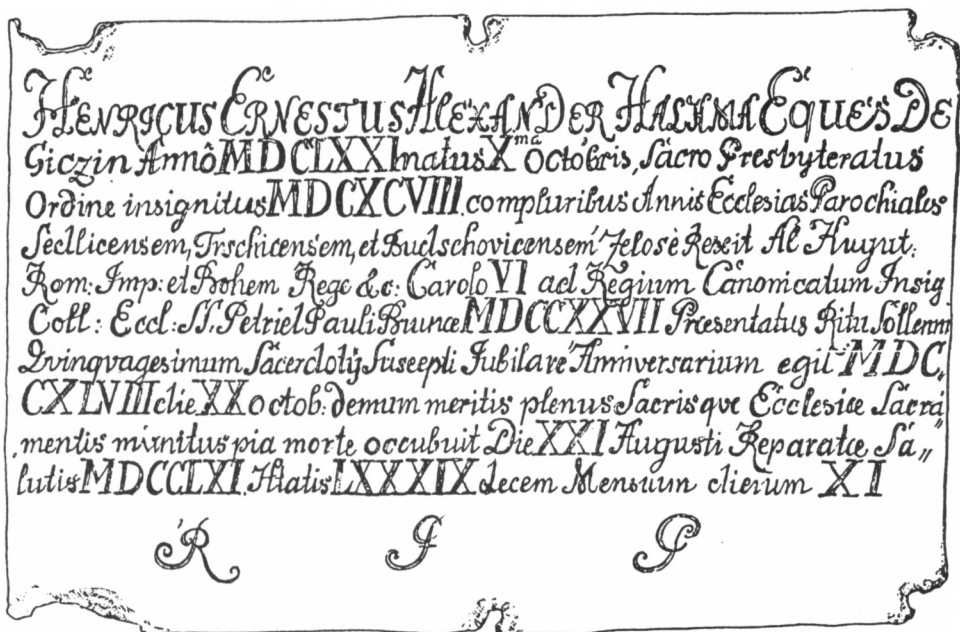 HENRICUS ERNESTUS ALEXANDER HALAMA EQUES DE
Giczin Annô MDCLXXI natus X^ma Octobris, Sacro Presbyteratus
Ordine insignitus MDCXCVIII. compluribus Annis Ecclesias Parochiales
Sedlicensem, Trschicensem, et Budschovicensem Zelosè Rexit Ab Augut:
Rom: Imp: et Bohem Rege &c: Carolo VI ad Regium Canonicatum Insig
Coll: Eccl: SS. Petri et Pauli Brunæ MDCCXXVII Præsentatus Ritu Sollenni
Qvinqvagesimum Sacerdotij Suscepti Jubilare Anniversarium egit MDC„
CXLVIII die XX octob: demum meritis plenus Sacrisque Ecclesiæ Sacra
mentis munitus pia morte occubuit Die XXI Augusti Reparatæ Sa„
lutis MDCCLXI. Ætatis LXXXIX decem Mensium dierum XI
R I P